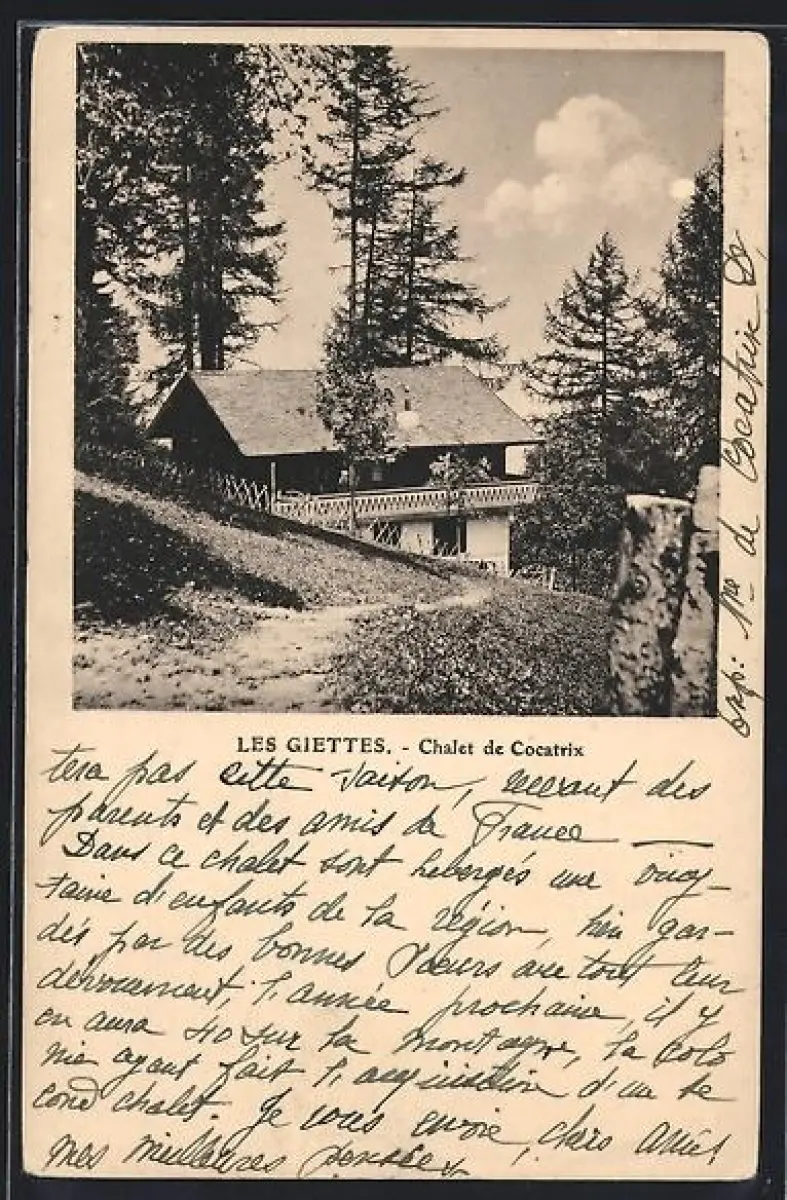 LES GIETTES. - Chalet de Cocatrix
tera pas cette saison, recevant des
parents et des amis de France —
Dans ce chalet sont hebergés une vingt-
taine d'enfants de la région, bien gar-
dés par des bonnes Soeurs avec tout leur
dévouement, l'année prochaine, il y
en aura 40 sur la montagne, la colo
nie ayant fait l'acquisition d'un se
cond chalet. Je vous envoie, chers amis,
mes meilleures pensées
exp: Mme de Cocatrix